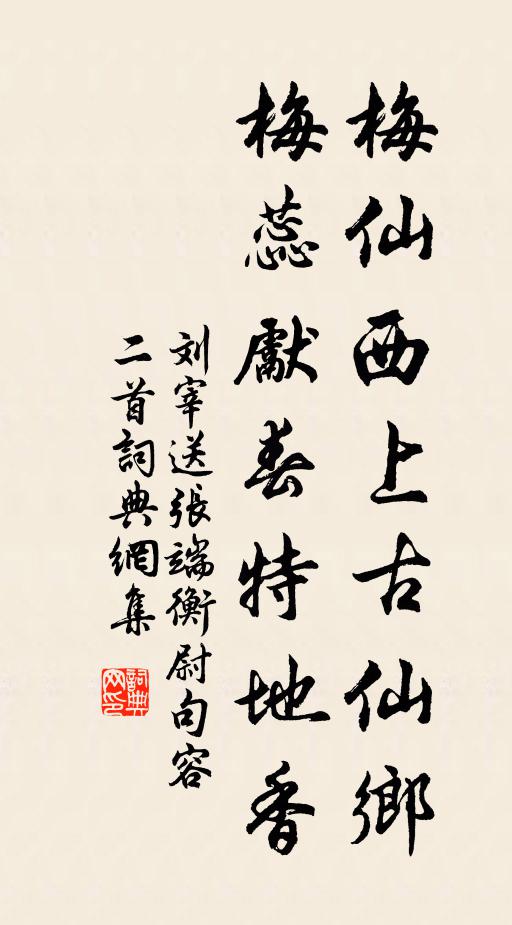 梅仙西上古仙鄉
梅蕊獻春特地香
刘宰送張端衡尉句容
二首詞典網集
詞典网印